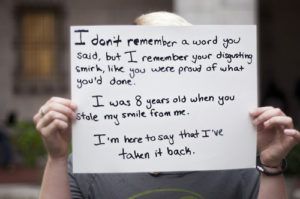 I don't remember a word you
said, but I remember your disgusting
smirk, like you were proud of what
you'd done.
I was 8 years old when you
stole my smile from me.
I'm here to say that I've
taken it back.